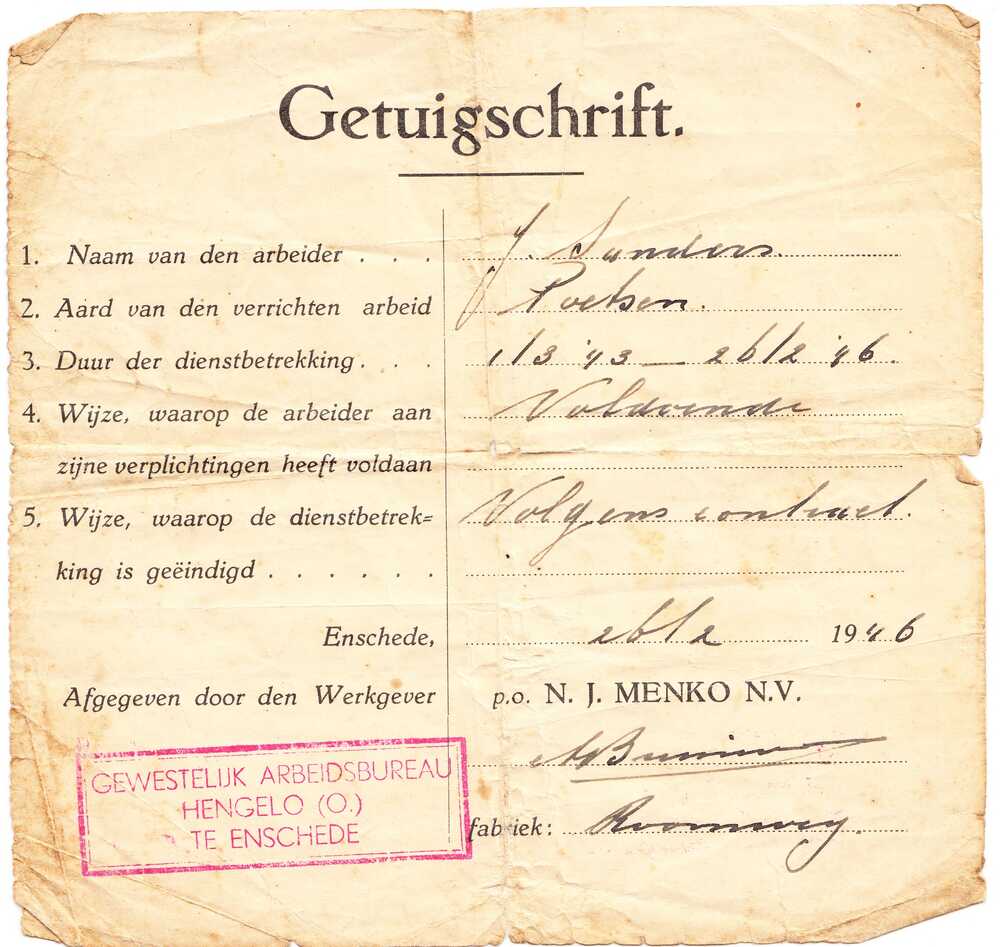 Getuigschrift.
1. Naam van den arbeider . . . J. Sanders.
2. Aard van den verrichten arbeid Poetsen.
3. Duur der dienstbetrekking . . . 1/3 '43 — 26/2 '46.
4. Wijze, waarop de arbeider aan Voldoende
zijne verplichtingen heeft voldaan
5. Wijze, waarop de dienstbetrek= Volgens contract.
king is geëindigd . . . . . .
Enschede, 26/2 1946
Afgegeven door den Werkgever p.o. N. J. MENKO N.V.
GEWESTELIJK ARBEIDSBUREAU
HENGELO (O.)
TE ENSCHEDE
fabriek: Roomweg.